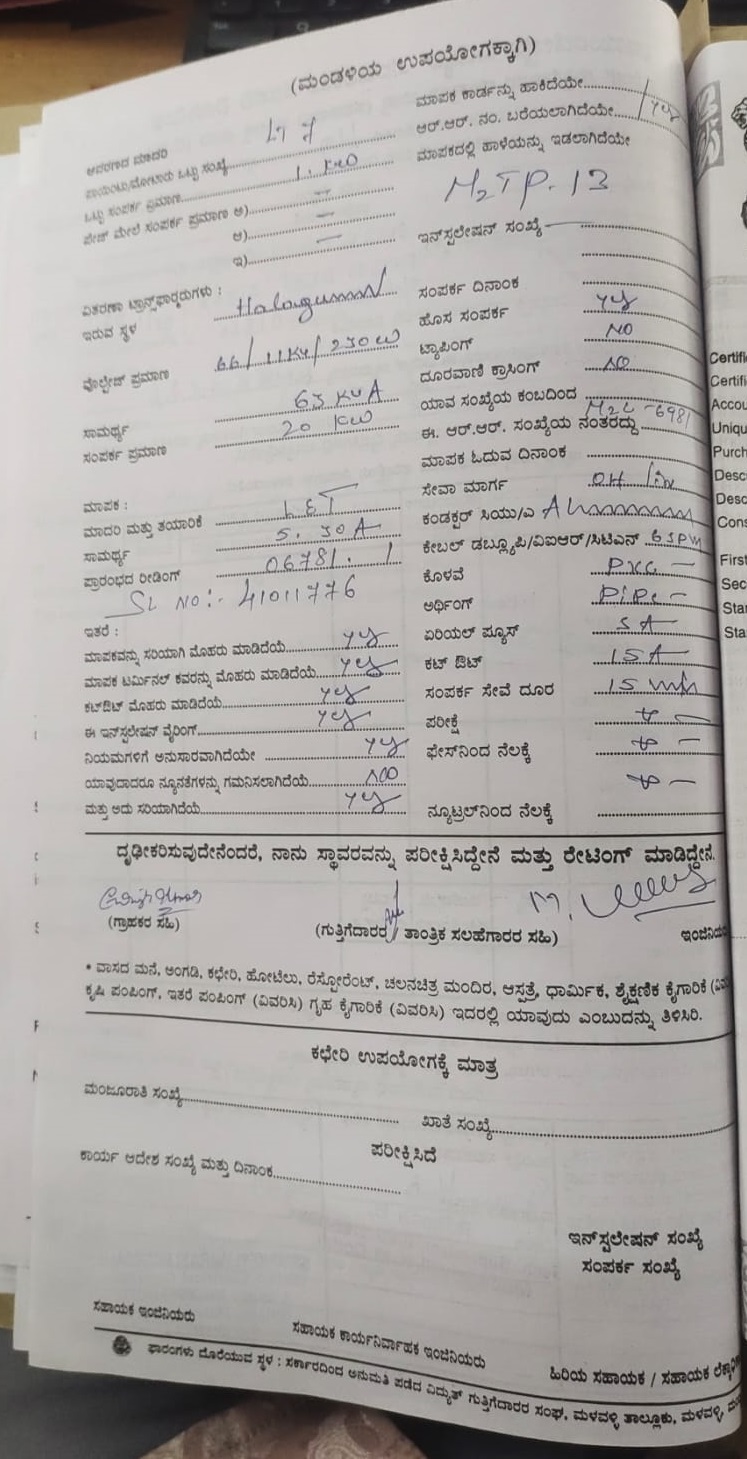 (ಮಂಡಳಿಯ ಉಪಯೋಗಕ್ಕಾಗಿ)
ಆವರಣದ ಮಾದರಿ LT 7
ಒಟ್ಟು ಸಂಖ್ಯೆ
ಒಟ್ಟು ಸಂಪರ್ಕ ಪ್ರಮಾಣ 1. KW
ಪೇಜ್ ಮೇಲೆ ಸಂಪರ್ಕ ಪ್ರಮಾಣ ಅ) –
ಆ) –
ಇ) –
ವಿತರಣಾ ಟ್ರಾನ್ಸ್‌ಫಾರ್ಮರುಗಳು :
ಇರುವ ಸ್ಥಳ
ವೊಲ್ಟೇಜ್ ಪ್ರಮಾಣ 66/11KV/230W
ಸಾಮರ್ಥ್ಯ 63 KVA
ಸಂಪರ್ಕ ಪ್ರಮಾಣ 20 KW
ಮಾಪಕ :
ಮಾದರಿ ಮತ್ತು ತಯಾರಿಕೆ L&T
ಸಾಮರ್ಥ್ಯ 5. 30A
ಪ್ರಾರಂಭದ ರೀಡಿಂಗ್ 06781. 1
SL NO:- 41011776
ಇತರೆ :
ಮಾಪಕವನ್ನು ಸರಿಯಾಗಿ ಮೊಹರು ಮಾಡಿದೆಯೆ yes
ಮಾಪಕ ಟರ್ಮಿನಲ್ ಕವರನ್ನು ಮೊಹರು ಮಾಡಿದೆಯೆ yes
ಕಟ್‌ಔಟ್ ಮೊಹರು ಮಾಡಿದೆಯೆ yes
ಈ ಇನ್‌ಸ್ಟಲೇಷನ್ ವೈರಿಂಗ್ yes
ನಿಯಮಗಳಿಗೆ ಅನುಸಾರವಾಗಿದೆಯೇ yes
ಯಾವುದಾದರೂ ನ್ಯೂನತೆಗಳನ್ನು ಗಮನಿಸಲಾಗಿದೆಯೆ NO
ಮತ್ತು ಅದು ಸರಿಯಾಗಿದೆಯೆ yes
ಮಾಪಕ ಕಾರ್ಡನ್ನು ಹಾಕಿದೆಯೇ
ಆರ್.ಆರ್. ನಂ. ಬರೆಯಲಾಗಿದೆಯೇ yes
ಮಾಪಕದಲ್ಲಿ ಹಾಳೆಯನ್ನು ಇಡಲಾಗಿದೆಯೇ
M2TP. 13
ಇನ್‌ಸ್ಟಲೇಷನ್ ಸಂಖ್ಯೆ –
ಸಂಪರ್ಕ ದಿನಾಂಕ
ಹೊಸ ಸಂಪರ್ಕ yes
ಟ್ಯಾಪಿಂಗ್ NO
ದೂರವಾಣಿ ಕ್ರಾಸಿಂಗ್ NO
ಯಾವ ಸಂಖ್ಯೆಯ ಕಂಬದಿಂದ
ಈ. ಆರ್.ಆರ್. ಸಂಖ್ಯೆಯ ನಂತರದ್ದು M2L-6981
ಮಾಪಕ ಓದುವ ದಿನಾಂಕ
ಸೇವಾ ಮಾರ್ಗ OH
ಕಂಡಕ್ಟರ್ ಸಿಯು/ಎ
ಕೇಬಲ್ ಡಬ್ಲ್ಯೂಪಿ/ವಿಐಆರ್/ಸಿಟಿಎಸ್
ಕೊಳವೆ PVC –
ಅರ್ಥಿಂಗ್ PIPE –
ಏರಿಯಲ್ ಫ್ಯೂಸ್ 5 A
ಕಟ್ ಔಟ್ 15A
ಸಂಪರ್ಕ ಸೇವೆ ದೂರ 15 mtr
ಪರೀಕ್ಷೆ
ಫೇಸ್‌ನಿಂದ ನೆಲಕ್ಕೆ
ನ್ಯೂಟ್ರಲ್‌ನಿಂದ ನೆಲಕ್ಕೆ
ದೃಢೀಕರಿಸುವುದೇನೆಂದರೆ, ನಾನು ಸ್ಥಾವರವನ್ನು ಪರೀಕ್ಷಿಸಿದ್ದೇನೆ ಮತ್ತು ರೇಟಿಂಗ್ ಮಾಡಿದ್ದೇನೆ.
(ಗ್ರಾಹಕರ ಸಹಿ) (ಗುತ್ತಿಗೆದಾರರ / ತಾಂತ್ರಿಕ ಸಲಹೆಗಾರರ ಸಹಿ) ಇಂಜಿನಿಯ
• ವಾಸದ ಮನೆ, ಅಂಗಡಿ, ಕಛೇರಿ, ಹೋಟೆಲು, ರೆಸ್ಟೋರೆಂಟ್, ಚಲನಚಿತ್ರ ಮಂದಿರ, ಆಸ್ಪತ್ರೆ, ಧಾರ್ಮಿಕ, ಶೈಕ್ಷಣಿಕ ಕೈಗಾರಿಕೆ (ವಿವ
ಕೃಷಿ ಪಂಪಿಂಗ್, ಇತರೆ ಪಂಪಿಂಗ್ (ವಿವರಿಸಿ) ಗೃಹ ಕೈಗಾರಿಕೆ (ವಿವರಿಸಿ) ಇದರಲ್ಲಿ ಯಾವುದು ಎಂಬುದನ್ನು ತಿಳಿಸಿರಿ.
ಕಛೇರಿ ಉಪಯೋಗಕ್ಕೆ ಮಾತ್ರ
ಮಂಜೂರಾತಿ ಸಂಖ್ಯೆ ಖಾತೆ ಸಂಖ್ಯೆ
ಪರೀಕ್ಷಿಸಿದೆ
ಕಾರ್ಯ ಆದೇಶ ಸಂಖ್ಯೆ ಮತ್ತು ದಿನಾಂಕ
ಇನ್‌ಸ್ಟಲೇಷನ್ ಸಂಖ್ಯೆ
ಸಂಪರ್ಕ ಸಂಖ್ಯೆ
ಸಹಾಯಕ ಇಂಜಿನಿಯರು ಸಹಾಯಕ ಕಾರ್ಯನಿರ್ವಾಹಕ ಇಂಜಿನಿಯರು ಹಿರಿಯ ಸಹಾಯಕ / ಸಹಾಯಕ
ಫಾರಂಗಳು ದೊರೆಯುವ ಸ್ಥಳ : ಸರ್ಕಾರದಿಂದ ಅನುಮತಿ ಪಡೆದ ವಿದ್ಯುತ್ ಗುತ್ತಿಗೆದಾರರ ಸಂಘ, ಮಳವಳ್ಳಿ ತಾಲ್ಲೂಕು, ಮಳವಳ್ಳಿ,
Certifi
Certifi
Accou
Uniqu
Purch
Desc
Desc
Cons
First
Sec
Star
Sta